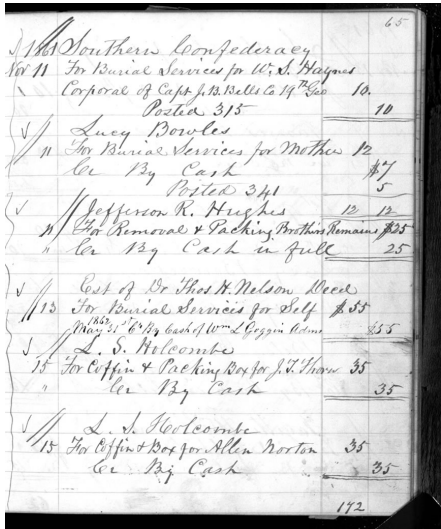 65
1861 Southern Confederacy
Nov 11 For Burial Services for W. S. Haynes
Corporal of Capt J. B. Bells Co 19th Geo 10.
Posted 315 10
Lucy Bowles
11 For Burial Services for Mother 12
Cr By Cash $7
Posted 341 5
Jefferson R. Hughes 12 12
11 For Removal & Packing Brothers Remains $25
" Cr By Cash in full 25
Est of Dr Thos. H. Nelson Decd
13 For Burial Services for Self $55
1862 May 31st Cr By Cash of Wm L Goggin Adms $55
L. S. Holcombe
15 For Coffin & Packing Box for J. T. 35
" Cr By Cash 35
L. S. Holcombe
15 For Coffin & Box for Allen Norton 35
Cr By Cash 35
172